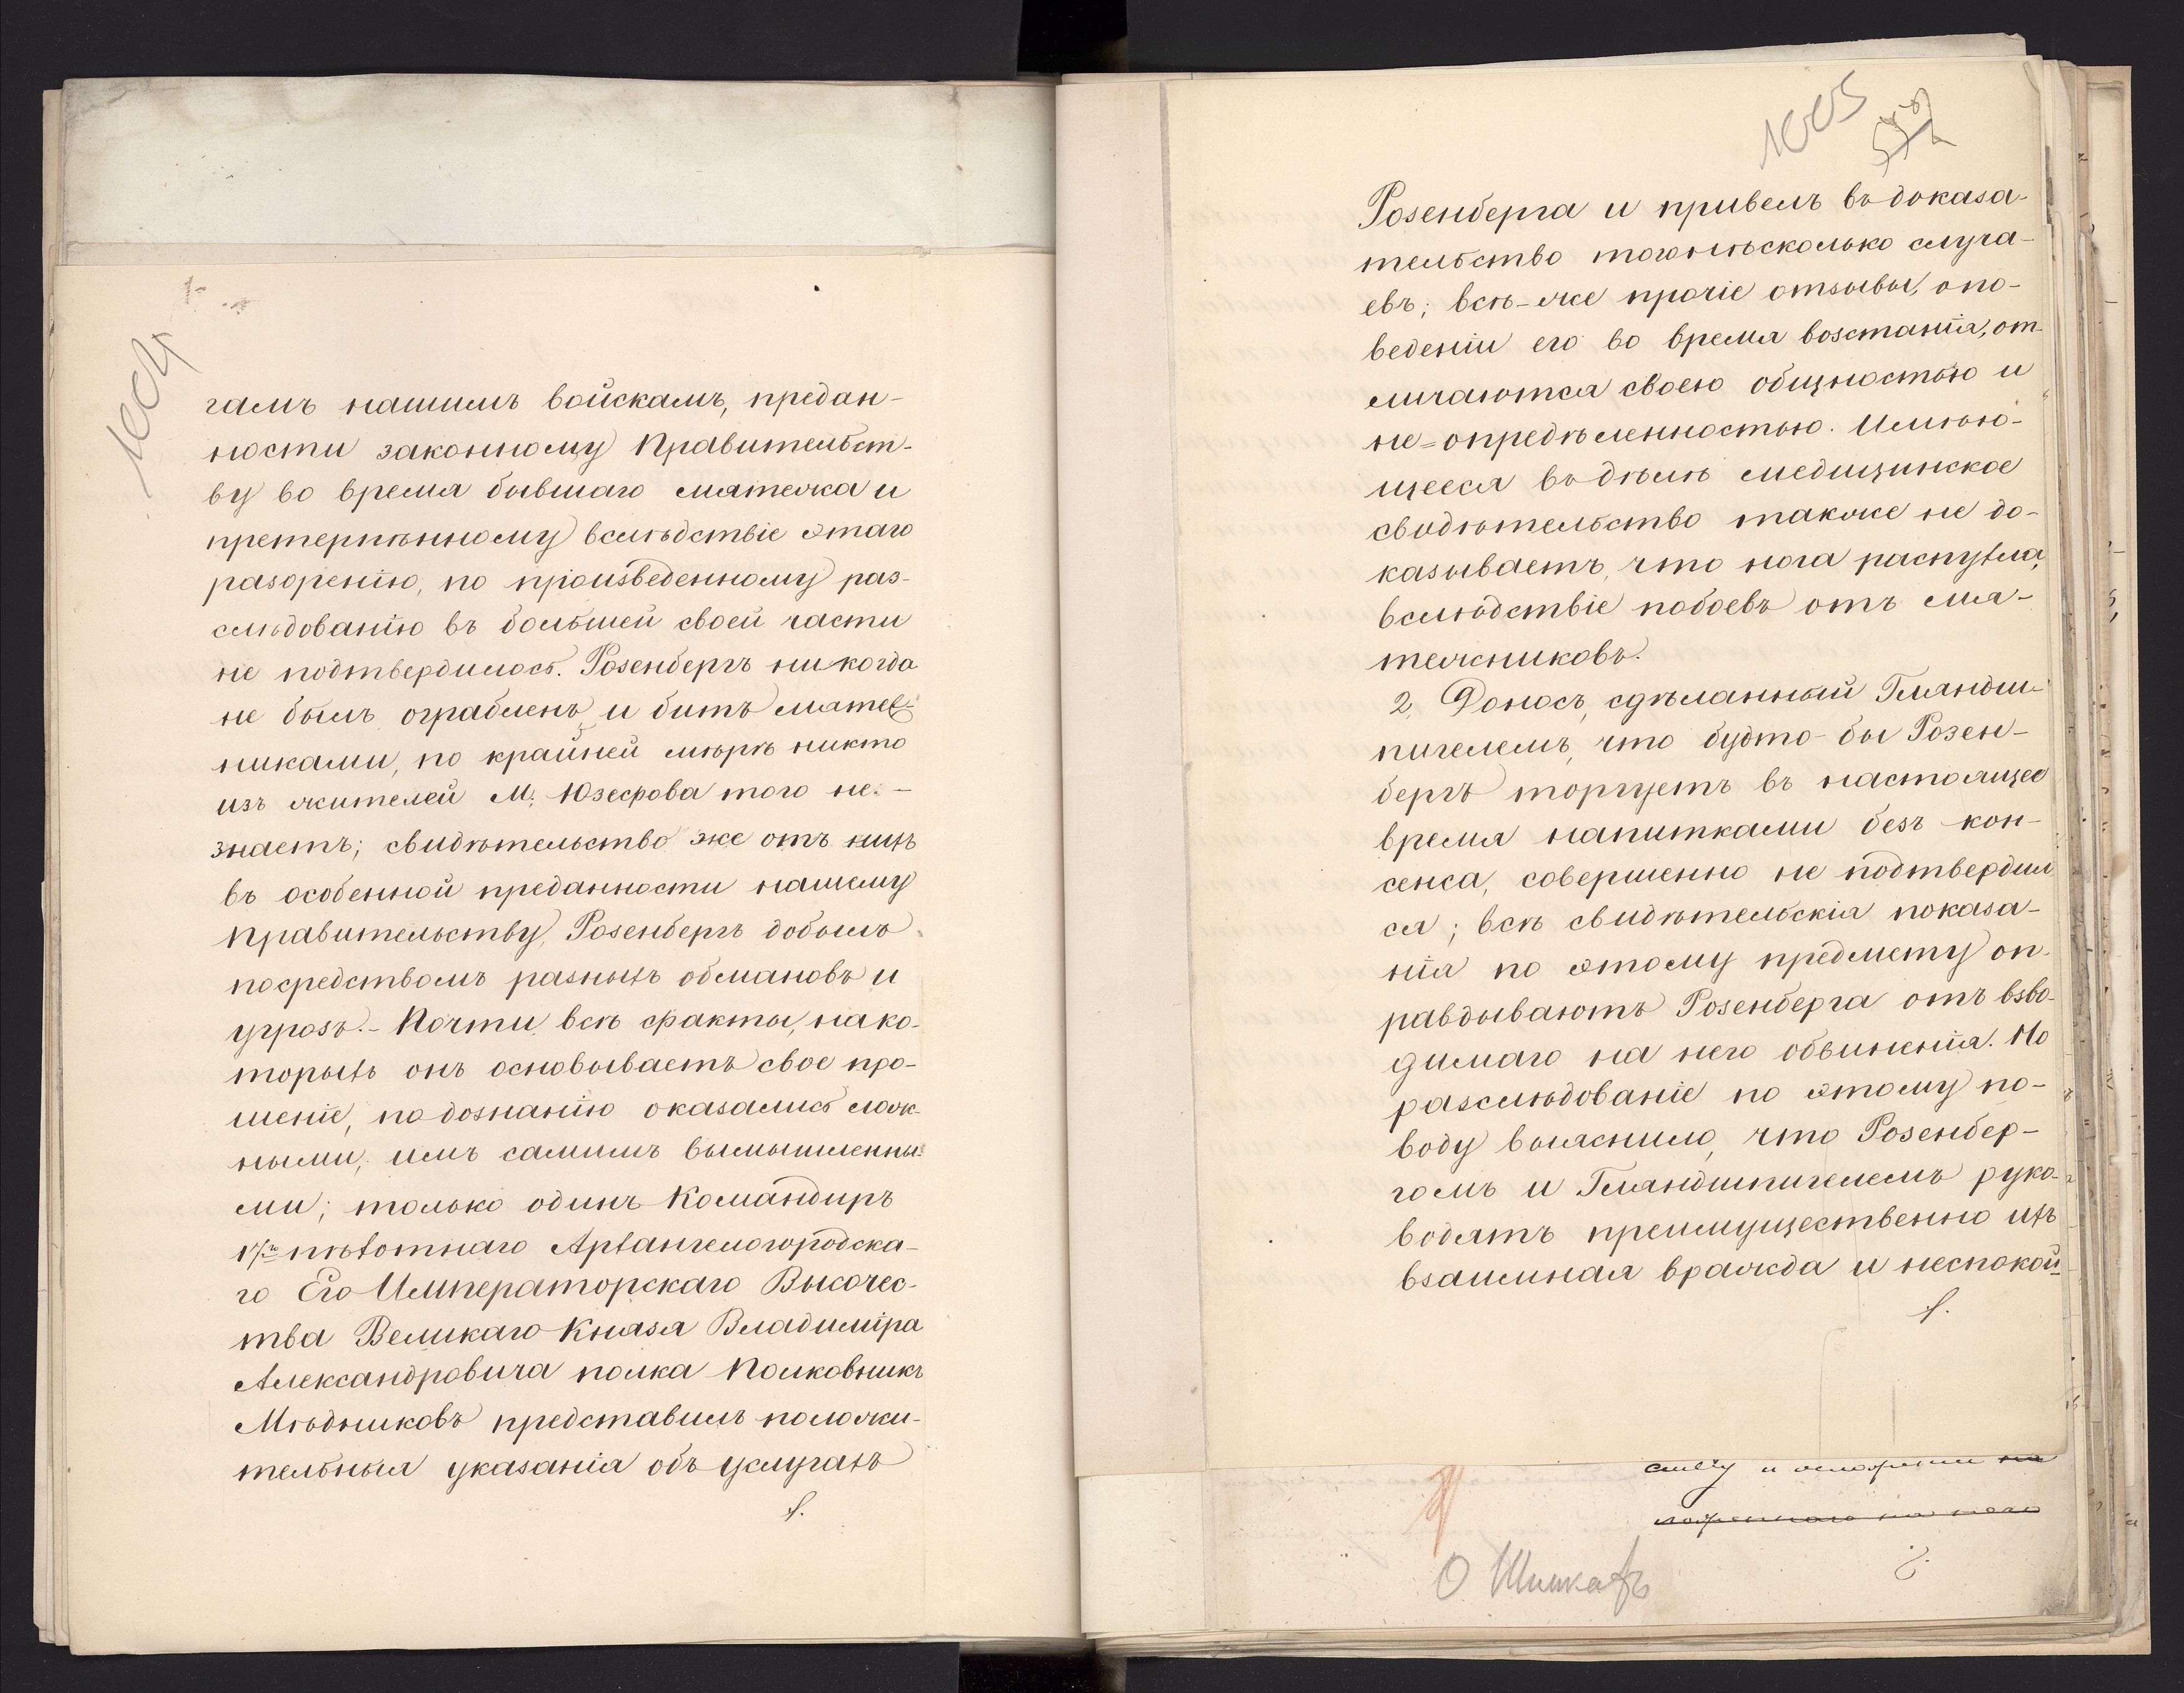 1004
гамъ нашимъ войскамъ, предан-
ности законному Правительст-
ву во время бывшаго мятежа и
претерпѣнному вслѣдствіе этаго
разоренію, по произведенному раз-
слѣдованію въ большей своей части
не подтвердилось. Розенбергъ никогда
не былъ ограбленъ и битъ мятеж-
никами, по крайней мѣрѣ никто
изъ жителей М. Юзефова того не-
знаетъ; свидѣтельство же отъ нихъ
въ особенной преданности нашему
Правительству, Розенбергъ добылъ
посредствомъ разныхъ обмановъ и
угрозъ.- Почти всѣ факты, на ко-
торыхъ онъ основываетъ свое про-
шеніе, по дознанію оказались лож-
ными, имъ самимъ вымышленны-
ми; только одинъ Командиръ
17го пѣхотнаго Архангелогородска-
го Его Императорскаго Высочес-
тва Великаго Князя Владиміра
Александровича полка Полковникъ
Мѣдниковъ представилъ положи-
тельныя указанія объ услугахъ
1005
Розенберга и привелъ въ доказа-
тельство того нѣсколько случа-
евъ; всѣ-же прочіе отзывы, о по-
веденіи его во время возстанія, от-
личаются своею общностью и
не=опредѣленностью. Имѣю-
щееся въ дѣлѣ медицинское
свидѣтельство также не до-
казываетъ, что нога распухла,
вслѣдствіе побоевъ отъ мя-
тежниковъ.
2, Доносъ, сдѣланный Гландш-
пигелемъ, что будто-бы Розен-
бергъ торгуетъ въ настоящее
время напитками безъ кон-
сенса, совершенно не подтвердил
ся; всѣ свидѣтельскія показа-
нія по этому предмету оп-
равдываютъ Розенберга отъ взво-
димаго на него обвиненія. Но
разслѣдованіе по этому по-
воду выяснило, что Розенбер-
гомъ и Гландшпигелемъ руко-
водятъ преимущественно ихъ
взаимная вражда и неспокой
О Шинкахъ